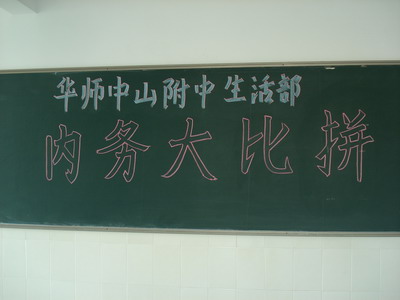 华师中山附中生活部
内务大比拼